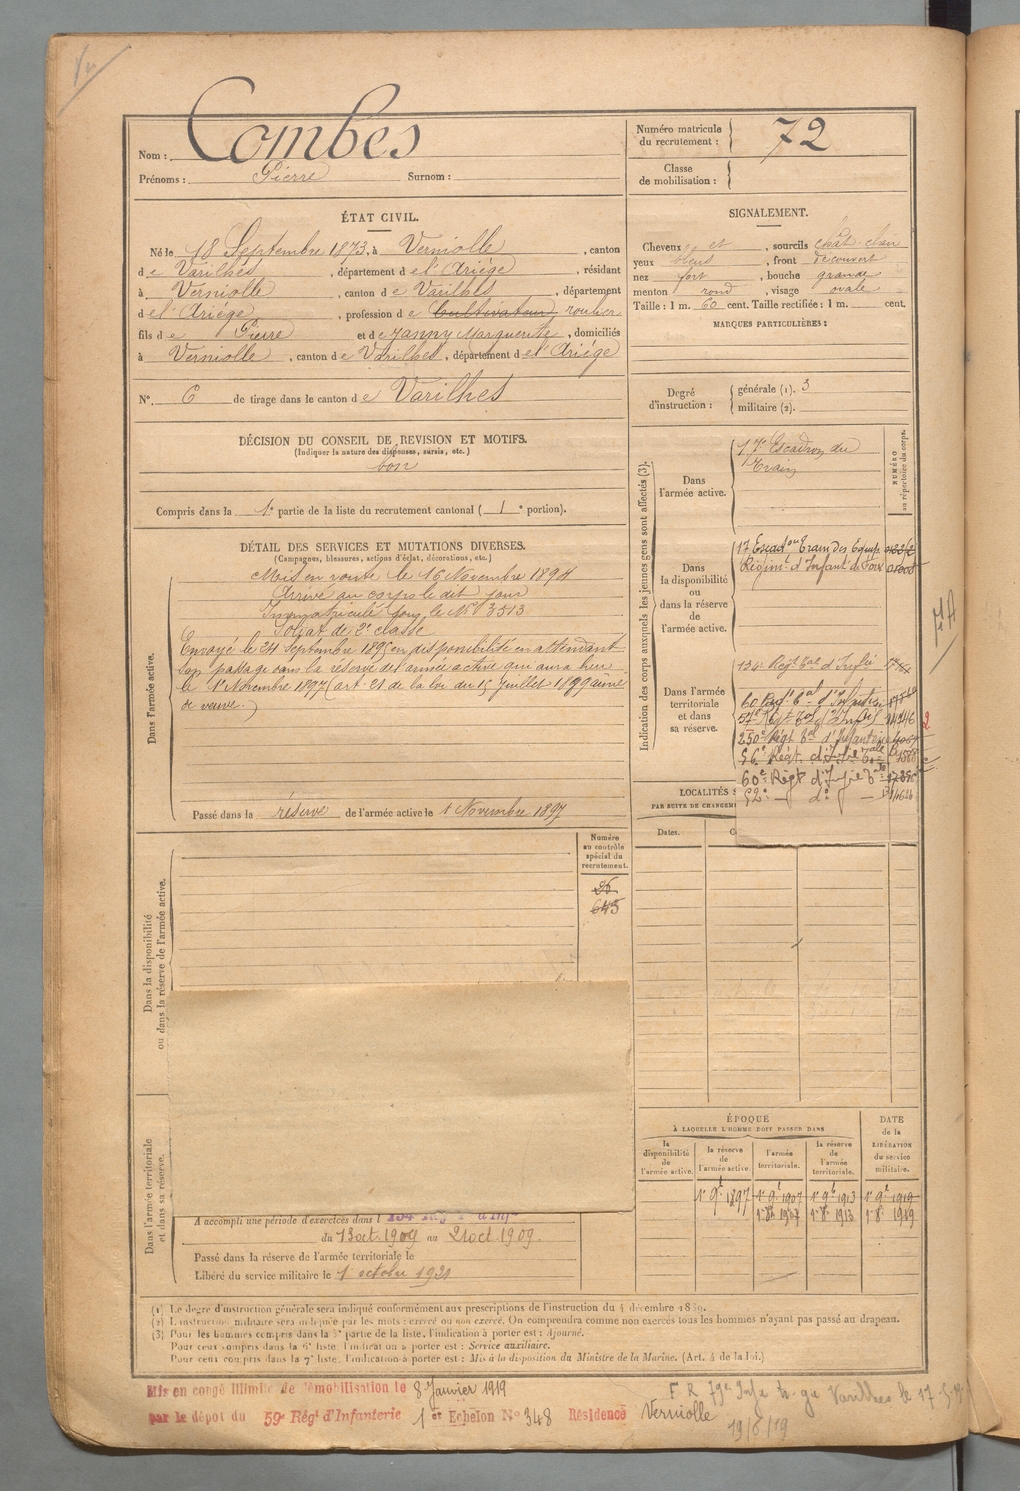 Nom : Combes
Prénoms : Pierre Surnom :
Numéro matricule du recrutement : 72
Classe de mobilisation :
ÉTAT CIVIL.
Né le 18 Septembre 1873, à Verniolle, canton
de Varilhes, département de l'Ariège, résidant
à Verniolle, canton de Varilhes, département
de l'Ariège, profession de Cultivateur, roulier
fils de Pierre et de Janny Marguerite, domiciliés
à Verniolle, canton de Varilhes, département de l'Ariège
N° 6 de tirage dans le canton de Varilhes
SIGNALEMENT.
Cheveux et, sourcils chât. clair
yeux bleus, front découvert
nez fort, bouche grande
menton rond, visage ovale
Taille : 1 m. 60 cent. Taille rectifiée : 1 m. cent.
MARQUES PARTICULIÈRES :
Degré d'instruction : générale (1). 3
militaire (2).
DÉCISION DU CONSEIL DE REVISION ET MOTIFS.
(Indiquer la nature des dispenses, sursis, etc.)
bon
Compris dans la 1e partie de la liste du recrutement cantonal ( 1 e portion).
DÉTAIL DES SERVICES ET MUTATIONS DIVERSES.
(Campagnes, blessures, actions d'éclat, décorations, etc.)
Dans l'armée active.
Mis en route le 16 Novembre 1894
Arrivé au corps le dit jour
Immatriculé sous le N° 3513
Soldat de 2e classe
Envoyé le 24 septembre 1895 en disponibilité en attendant
son passage dans la réserve de l'armée active qui aura lieu
le 1er Novembre 1897 (art. 21 de la loi du 15 Juillet 1889 aîné
de veuve.)
Passé dans la réserve de l'armée active le 1 Novembre 1897
Indication des corps auxquels les jeunes gens sont affectés (3).
NUMÉRO au répertoire du corps.
Dans l'armée active.
17e Escadron du
Train
Dans la disponibilité ou dans la réserve de l'armée active.
17 Escadon Train des Equip
Régimt d'Infant de Foix
Dans l'armée territoriale et dans sa réserve.
134e Régt Tal d'Infie
60 Régt Tal d'Infanterie
57e Régt Tal d'Infie
250e Régt Tal d'Infanterie
56e Régt d'Infie Tale
60e Régt d'Infie Tle
52e - de -
LOCALITÉS
PAR SUITE DE CHANGEM
Dates.
Numéro au contrôle spécial du recrutement.
645
Dans la disponibilité ou dans la réserve de l'armée active.
Dans l'armée territoriale et dans sa réserve.
A accompli une période d'exercices dans l
du 13 oct. 1909 au 21 oct. 1909.
Passé dans la réserve de l'armée territoriale le
Libéré du service militaire le 1 octobre 1921
ÉPOQUE
À LAQUELLE L'HOMME DOIT PASSER DANS
DATE de la LIBÉRATION du service militaire.
la disponibilité de l'armée active.
la réserve de l'armée active.
l'armée territoriale.
la réserve de l'armée territoriale.
1er 9bre 1897 1er 9bre 1907 1er 9bre 1913 1er 9bre 1919
1er 8bre 1907 1er 8bre 1913 1er 8bre 1919
(1) Le degré d'instruction générale sera indiqué conformément aux prescriptions de l'instruction du 4 décembre 1889.
(2) L'instruction militaire sera indiquée par les mots : exercé ou non exercé. On comprendra comme non exercés tous les hommes n'ayant pas passé au drapeau.
(3) Pour les hommes compris dans la 5e partie de la liste, l'indication à porter est : Ajourné.
Pour ceux compris dans la 6e liste, l'indication à porter est : Service auxiliaire.
Pour ceux compris dans la 7e liste, l'indication à porter est : Mis à la disposition du Ministre de la Marine. (Art. 4 de la loi.)
Mis en congé illimité de démobilisation le 8 Janvier 1919
par le dépôt du 59e Régt d'Infanterie 1er Echelon N° 348 Résidence Verniolle
19/6/19